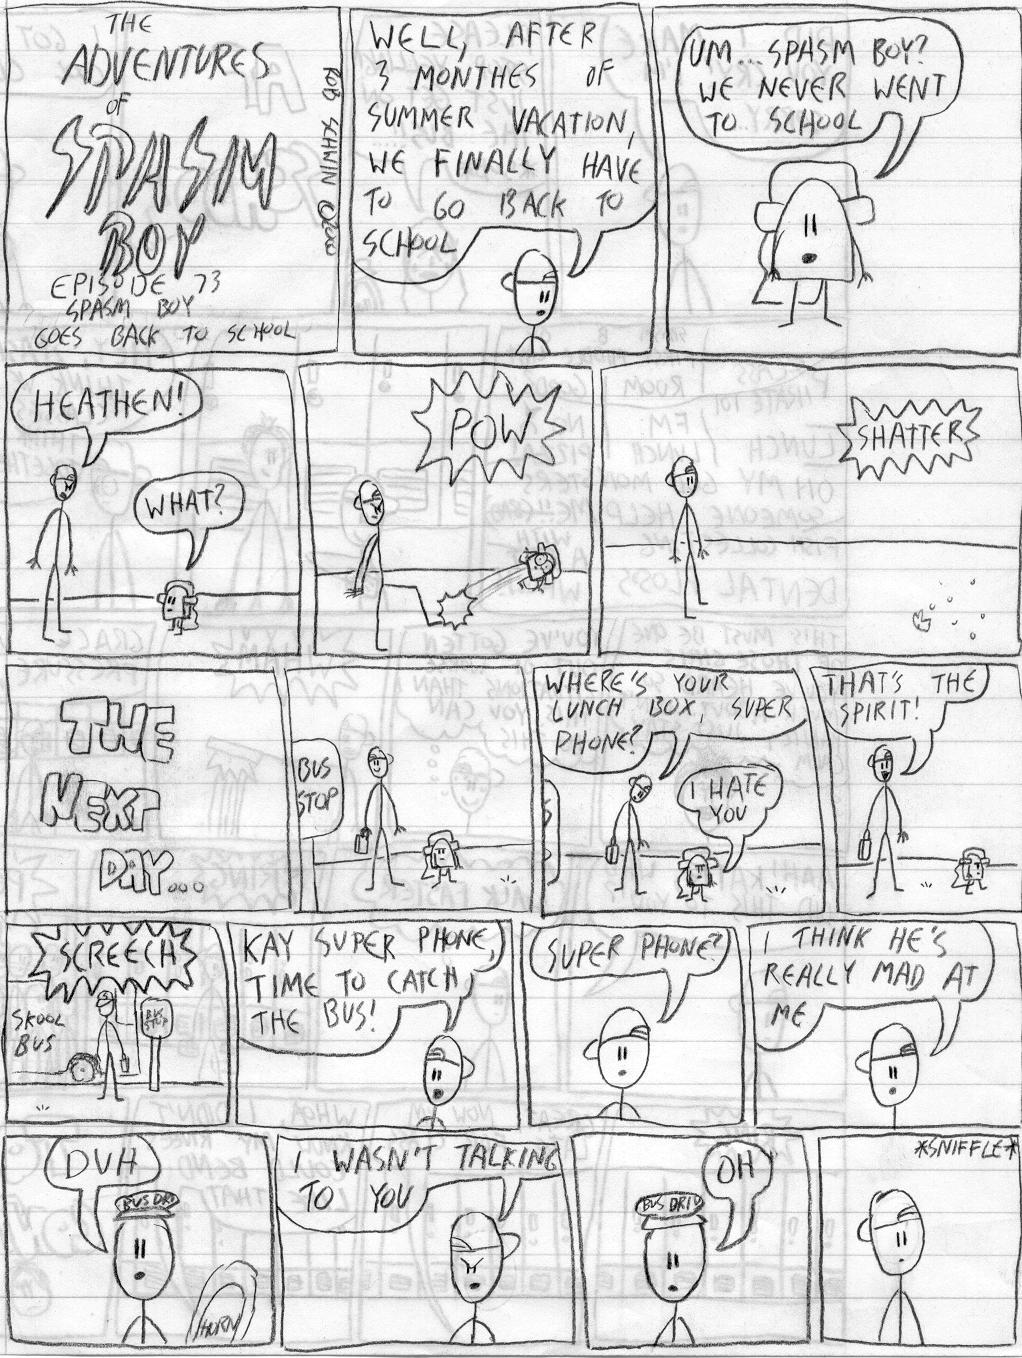 THE
ADVENTURES
OF
SPASM
BOY
EPISODE 73
SPASM BOY
GOES BACK TO SCHOOL
ROB SCHWIN ©2000
WELL, AFTER
3 MONTHES OF
SUMMER VACATION,
WE FINALLY HAVE
TO GO BACK TO
SCHOOL
UM...SPASM BOY?
WE NEVER WENT
TO SCHOOL
HEATHEN!
WHAT?
POW
SHATTER
THE
NEXT
DAY...
BUS
STOP
WHERE'S YOUR
LUNCH BOX, SUPER
PHONE?
I HATE
YOU
THAT'S THE
SPIRIT!
SCREECH
SKOOL
BUS
BUS
STOP
KAY SUPER PHONE,
TIME TO CATCH
THE BUS!
SUPER PHONE?
I THINK HE'S
REALLY MAD AT
ME
DUH
BUS DRIV
HORN
I WASN'T TALKING
TO YOU
OH
BUS DRIV
*SNIFFLE*